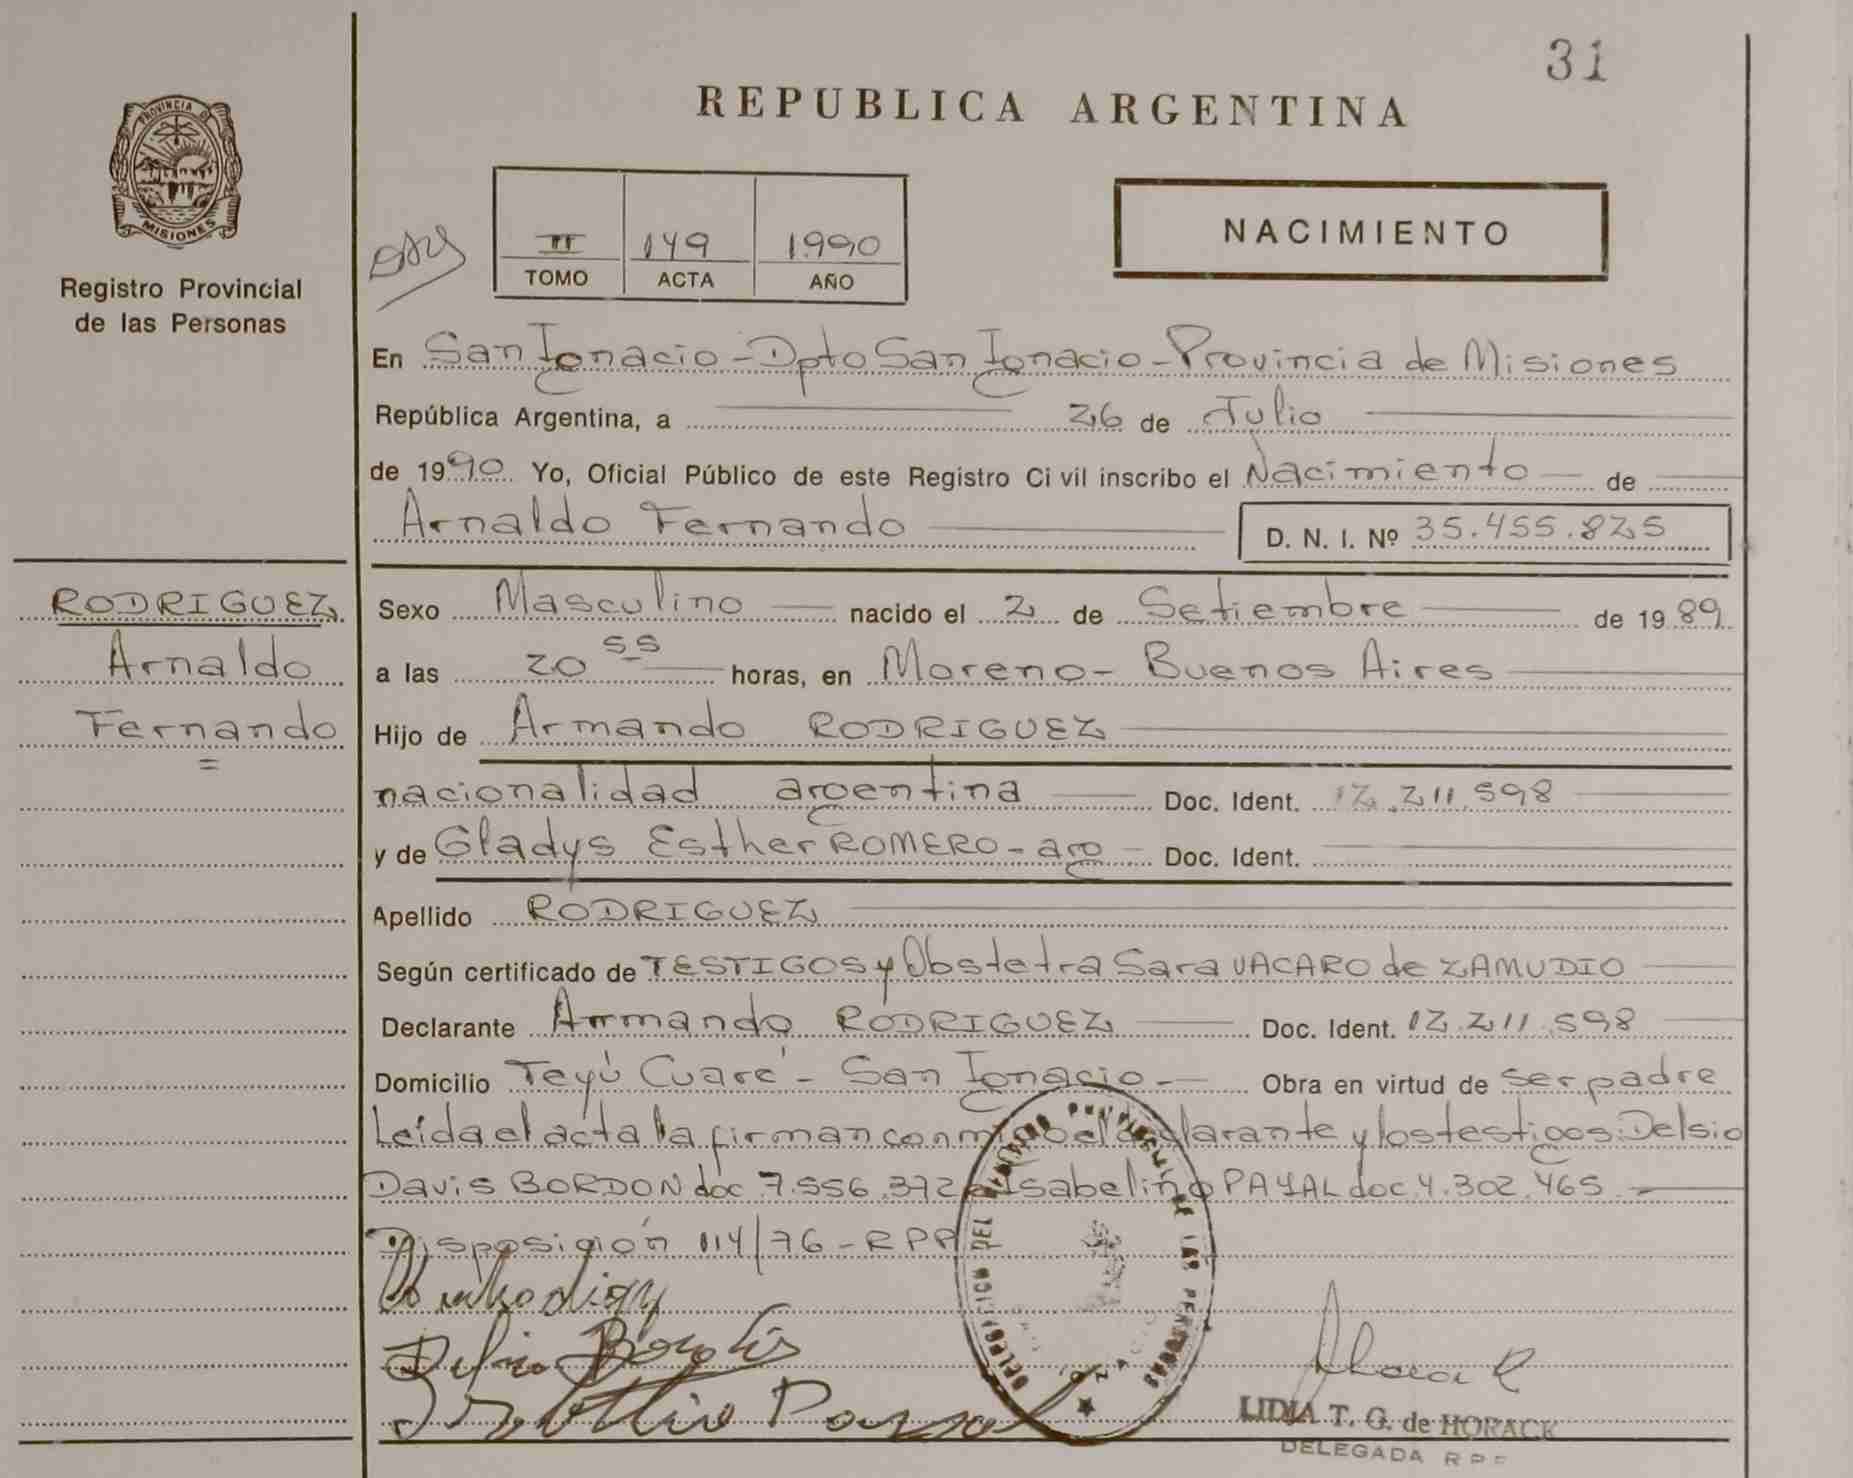 31
REPUBLICA ARGENTINA
PROVINCIA D
MISIONES
Registro Provincial
de las Personas
II 149 1990
TOMO ACTA AÑO
NACIMIENTO
En San Ignacio - Dpto San Ignacio - Provincia de Misiones
República Argentina, a 26 de Julio
de 1990 Yo, Oficial Público de este Registro Civil inscribo el Nacimiento de
Arnaldo Fernando D. N. I. Nº 35.455.825
RODRIGUEZ
Arnaldo
Fernando
=
Sexo Masculino nacido el 2 de Setiembre de 1989
a las 20 55 horas, en Moreno - Buenos Aires
Hijo de Armando RODRIGUEZ
nacionalidad argentina Doc. Ident. 12.211.598
y de Gladys Esther ROMERO - arg Doc. Ident.
Apellido RODRIGUEZ
Según certificado de TESTIGOS y Obstetra Sara VACARO de ZAMUDIO
Declarante Armando RODRIGUEZ Doc. Ident. 12.211.598
Domicilio Teyú Cuaré - San Ignacio - Obra en virtud de ser padre
Leída el acta la firman conmigo el declarante y los testigos: Delsio
Davis BORDON doc 7.556.372 e Isabelino PAYAL doc. 4.302.465 -
Disposición 114/76 - RPP
LIDIA T. G. de HORACK
DELEGADA R P P